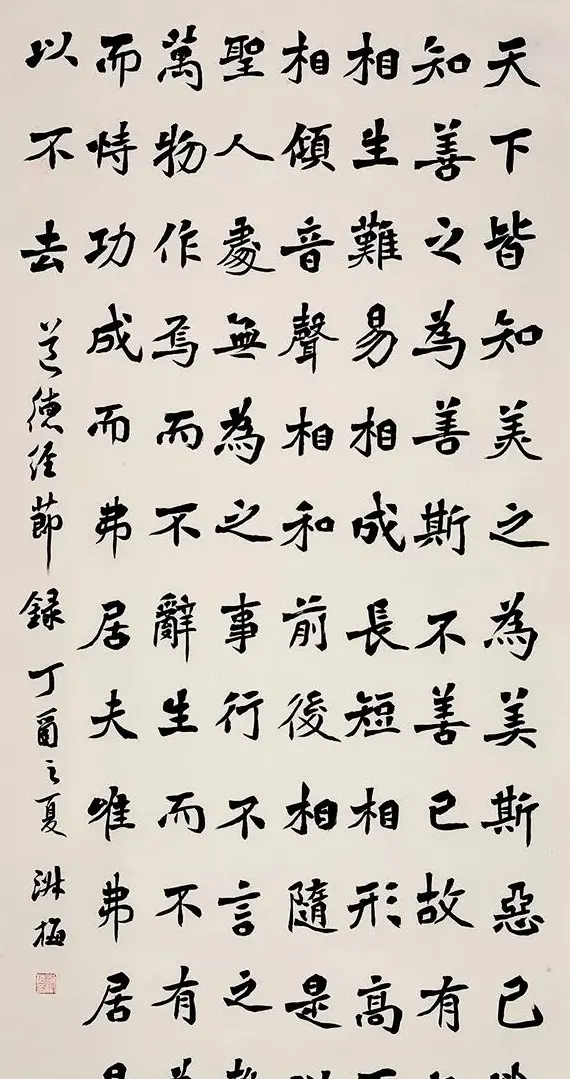 天下皆知美之為美斯惡已
知善之為善斯不善已故有
相生難易相成長短相形高
相傾音聲相和前後相隨是
聖人處無為之事行不言之
萬物作焉而不辭生而不有
而恃功成而弗居夫唯弗居
以不去 道德經節録 丁酉之夏 梅